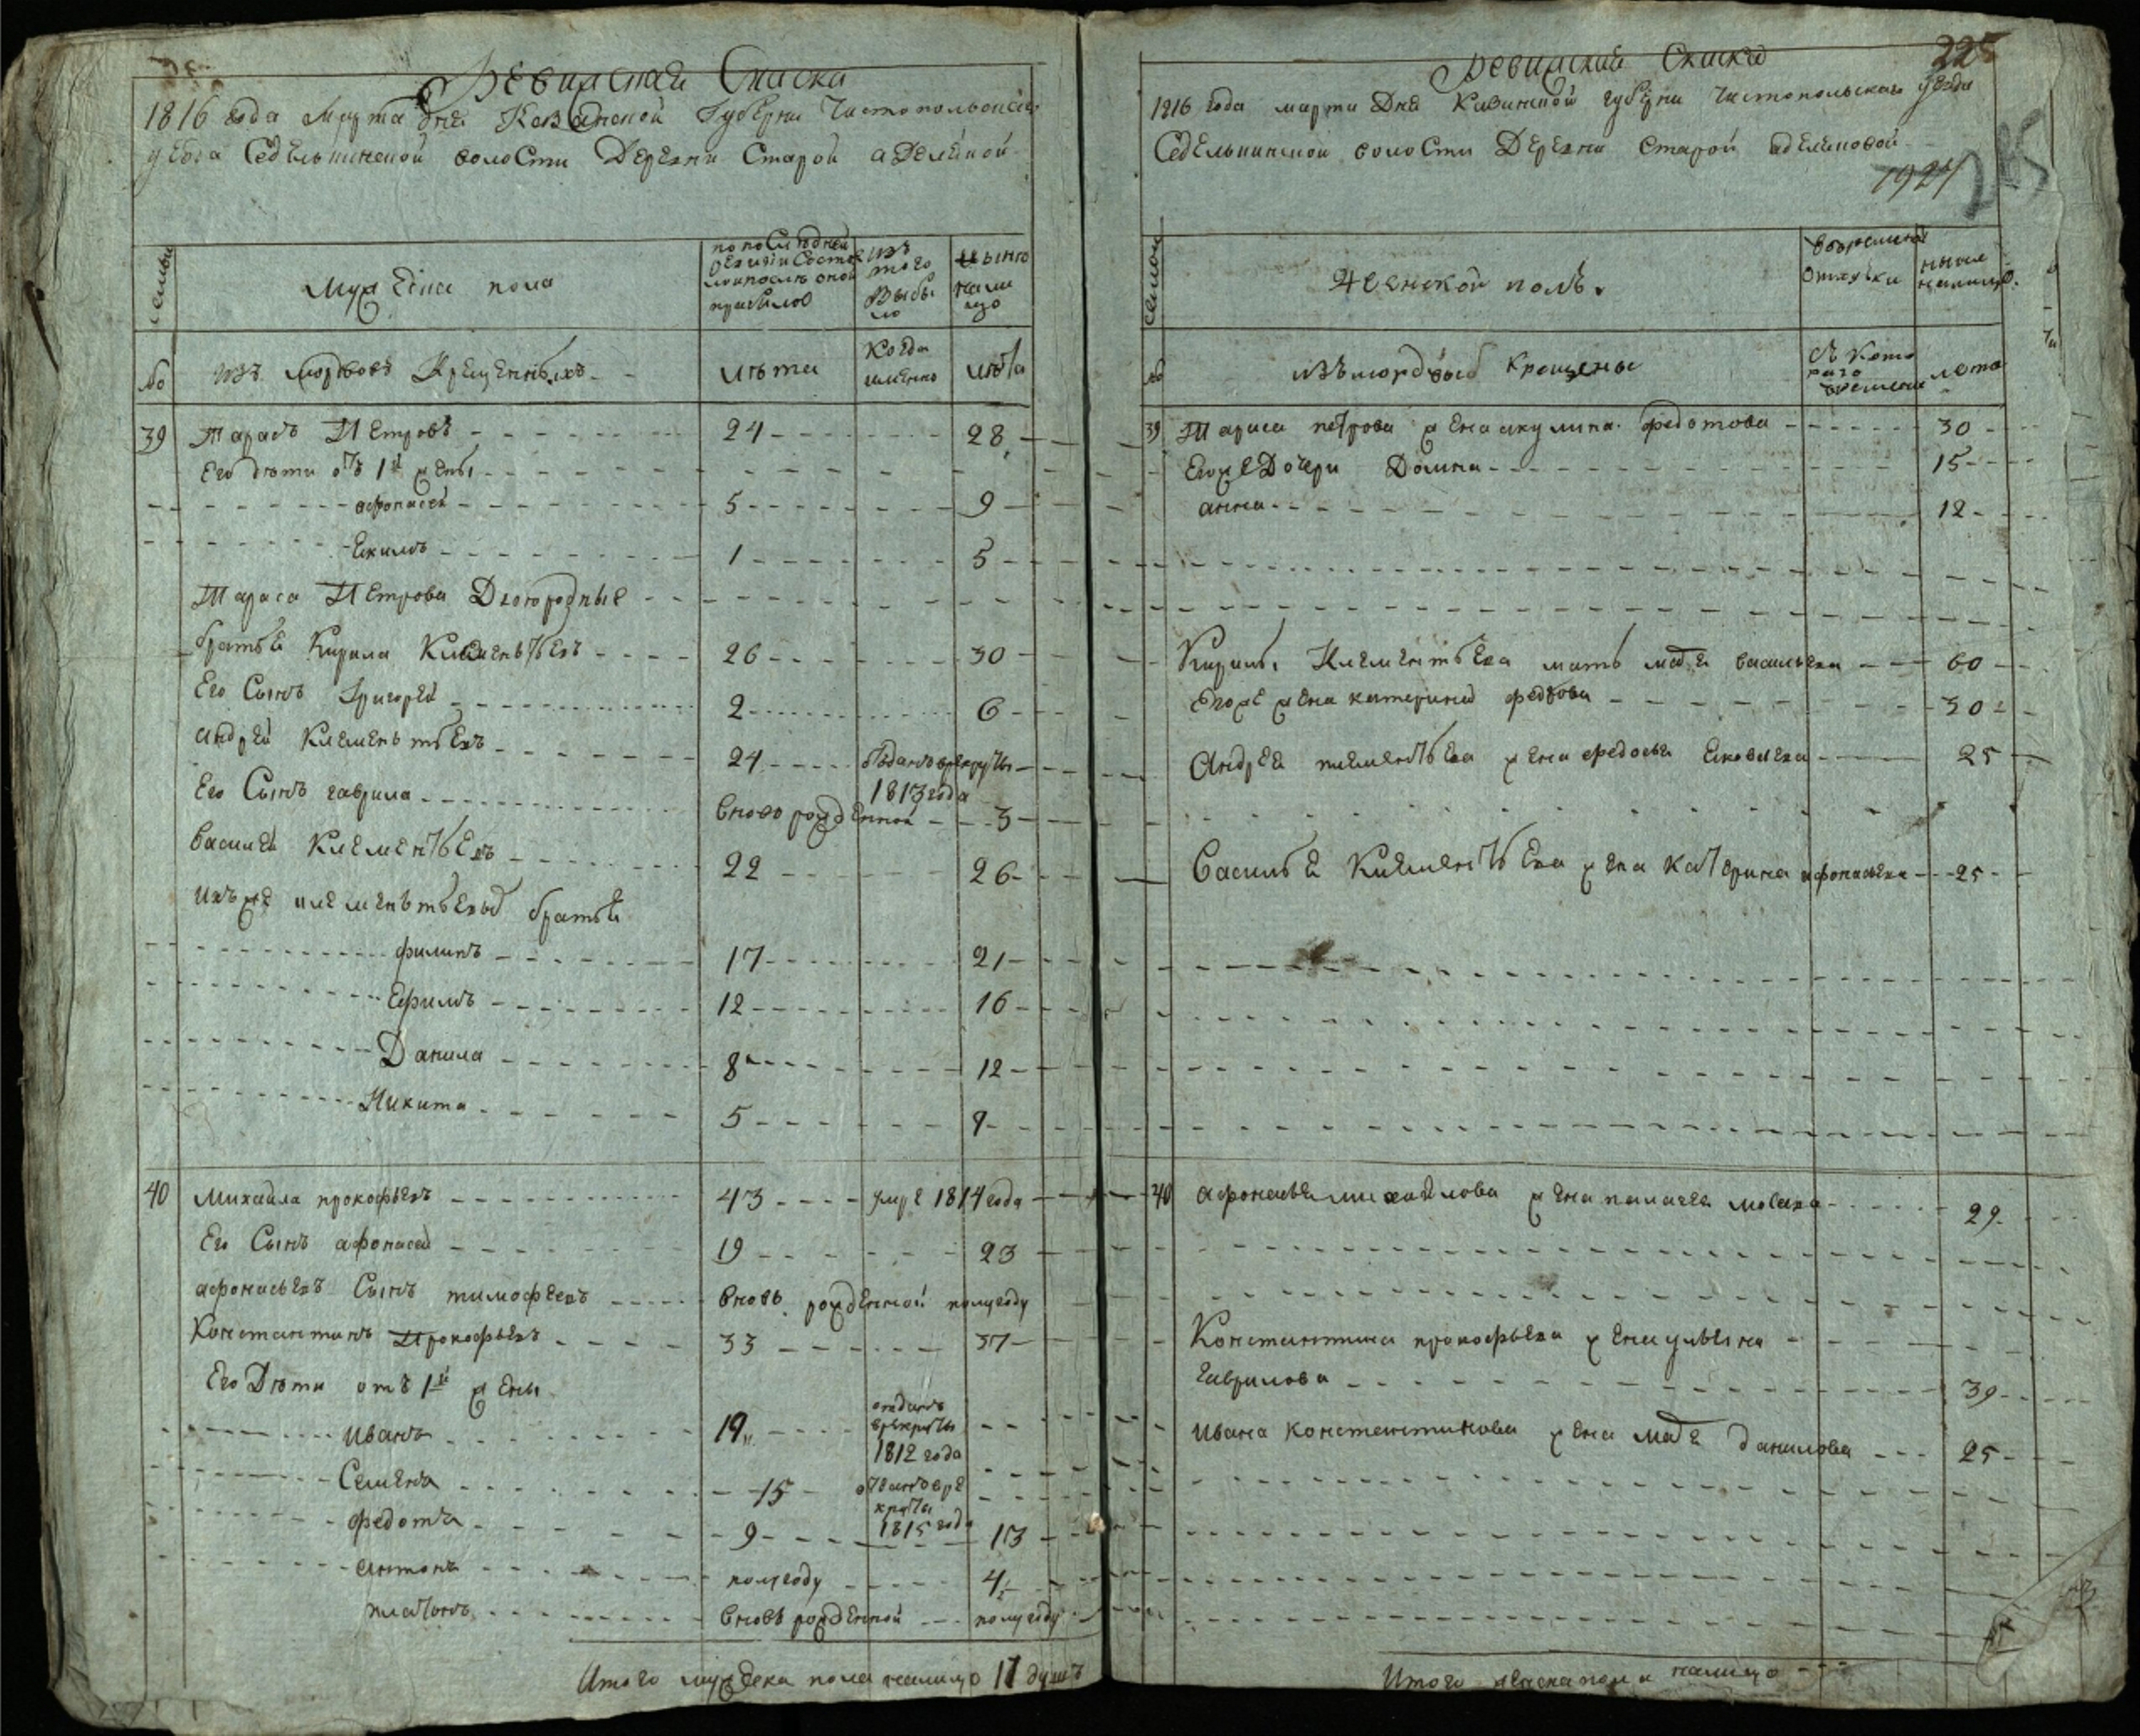 Ревизская Сказка
1816 года Марта дня Казанской Губерни Чистопольской
уезда Седелькинской волости Деревни Старой аделякой
семьи
Мужеска пола
по последней ревизии Состояло и после оной прибыло
изъ того Выбыло
ныне на лицо
№
изъ мордвовъ Крещенныхъ
лета
Когда именно
лета
39 Тарасъ Петровъ 24 28
Его дети отъ 1й жены
афонасей 5 9
Екимъ 1 5
Тараса Петрова Двоюродные
братья Кирила Клементьевъ 26 30
Его Сынъ Григорей 2 6
андрей Клементьевъ 24 отданъ в рекруты
1813 года
Его Сынъ гаврила вновь рожденной 3
василей Клементьевъ 22 26
Ихъ же клементьевы братья
филипъ 17 21
Ефимъ 12 16
Данила 8 12
Никита 5 9
40 михайла прокофьевъ 43 умре 1814 года
Его Сынъ афонасей 19 23
афонасьевъ Сынъ тимофеевъ вновь рожденной полугоду
Константинъ Прокофьевъ 33 37
Его Дети отъ 1й жены
иванъ 19 отданъ в рекруты 1812 года
Семенъ 15 отданъ в рекруты 1815 года
федотъ 9 13
антонъ полугоду 4
платонъ вновь рожденной полугоду
Итого мужеска пола налицо 17 душъ
Ревизкия Скаска
225
1816 года марта Дня Казанской губерни чистопольскаго уезда
Седелькинской волости Деревни Старой аделяковой
1924
семьи
Женской полъ.
во временной отлучки
ныне налицо.
№
изъ мордвовъ крещены
Съ котораго времени
лета
39 Тараса петрова жена акулина федотова 30
Его же Дочери Домна 15
анна 12
Кирилы Клементьева мать мавра васильева 60
Его же жена катерина федотова 30
Андрея клементьева жена федосья Ековлева 25
Василья Клементьева жена Катерина афонасьева 25
40 афонасья михайлова жена палагея мосеева 29
Константина прокофьева жена ульяна
гаврилова 39
ивана константинова жена мавра данилова 25
Итого женска пола налицо